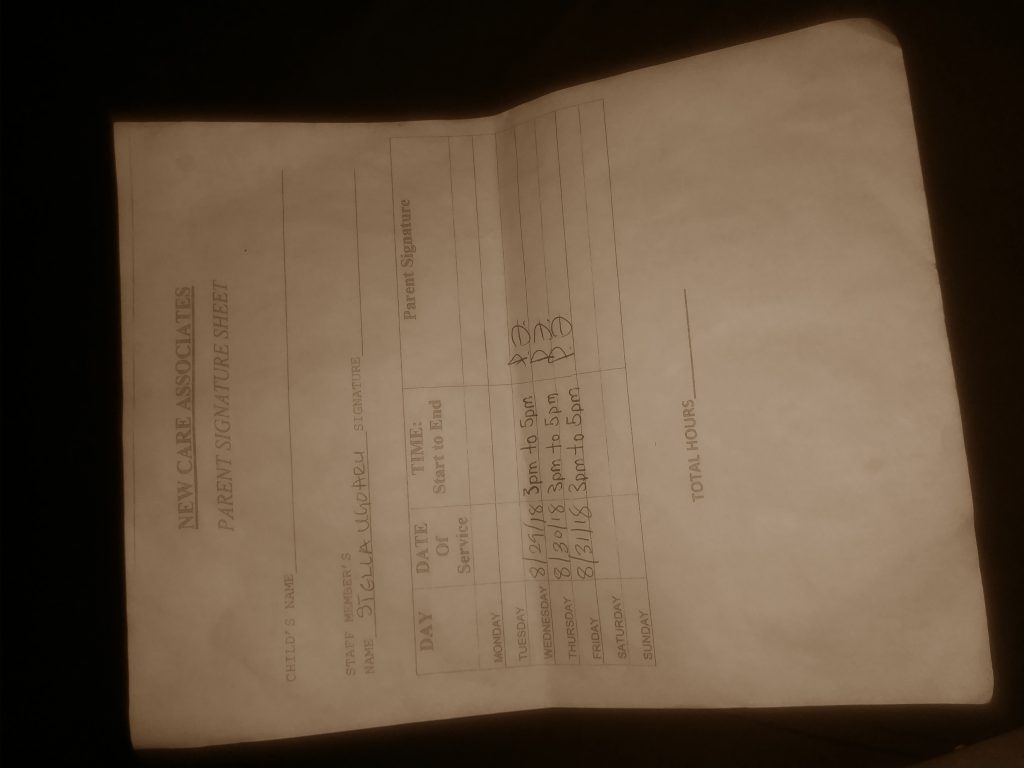 NEW CARE ASSOCIATES
PARENT SIGNATURE SHEET
CHILD'S NAME
STAFF MEMBER'S
NAME STELLA UGOARU SIGNATURE
DAY DATE Of Service TIME: Start to End Parent Signature
MONDAY
TUESDAY
WEDNESDAY 8/29/18 3pm to 5pm
THURSDAY 8/30/18 3pm to 5pm
FRIDAY 8/31/18 3pm to 5pm
SATURDAY
SUNDAY
TOTAL HOURS